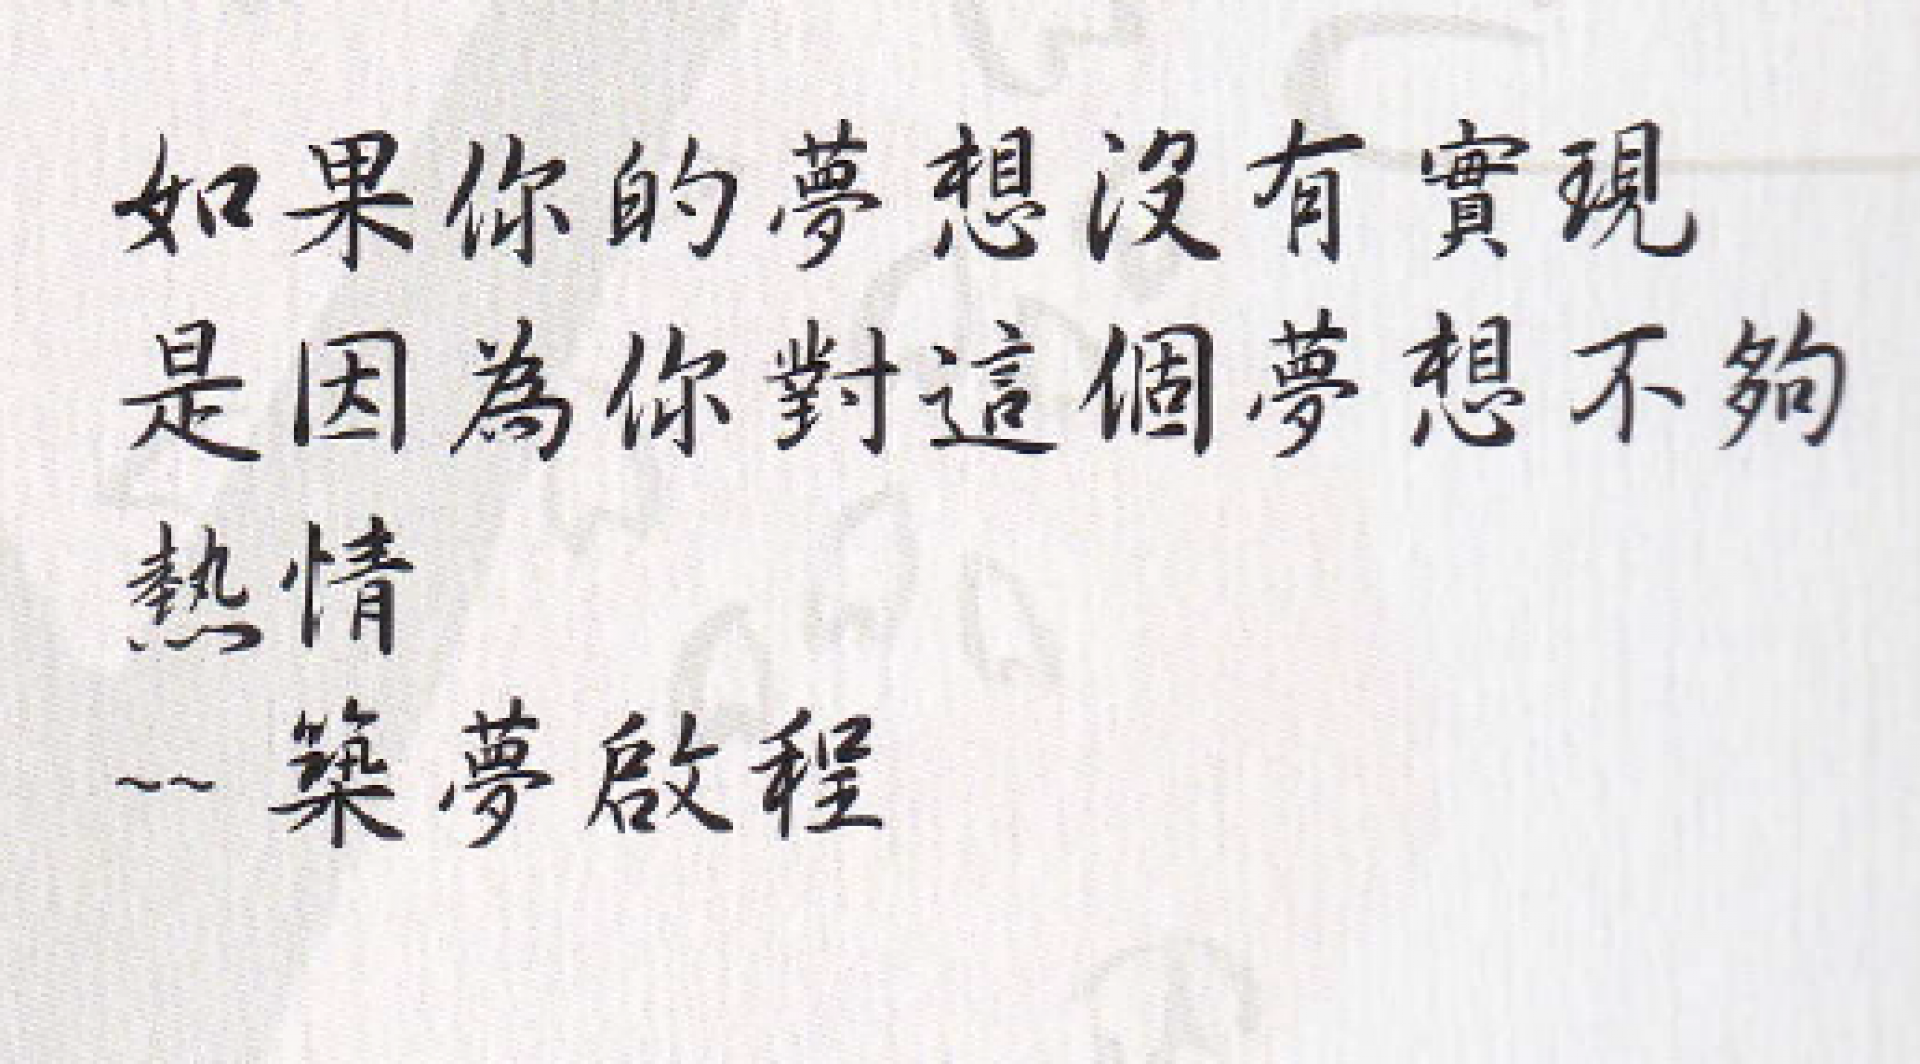 如果你的夢想沒有實現
是因為你對這個夢想不夠
熱情
~~築夢啟程